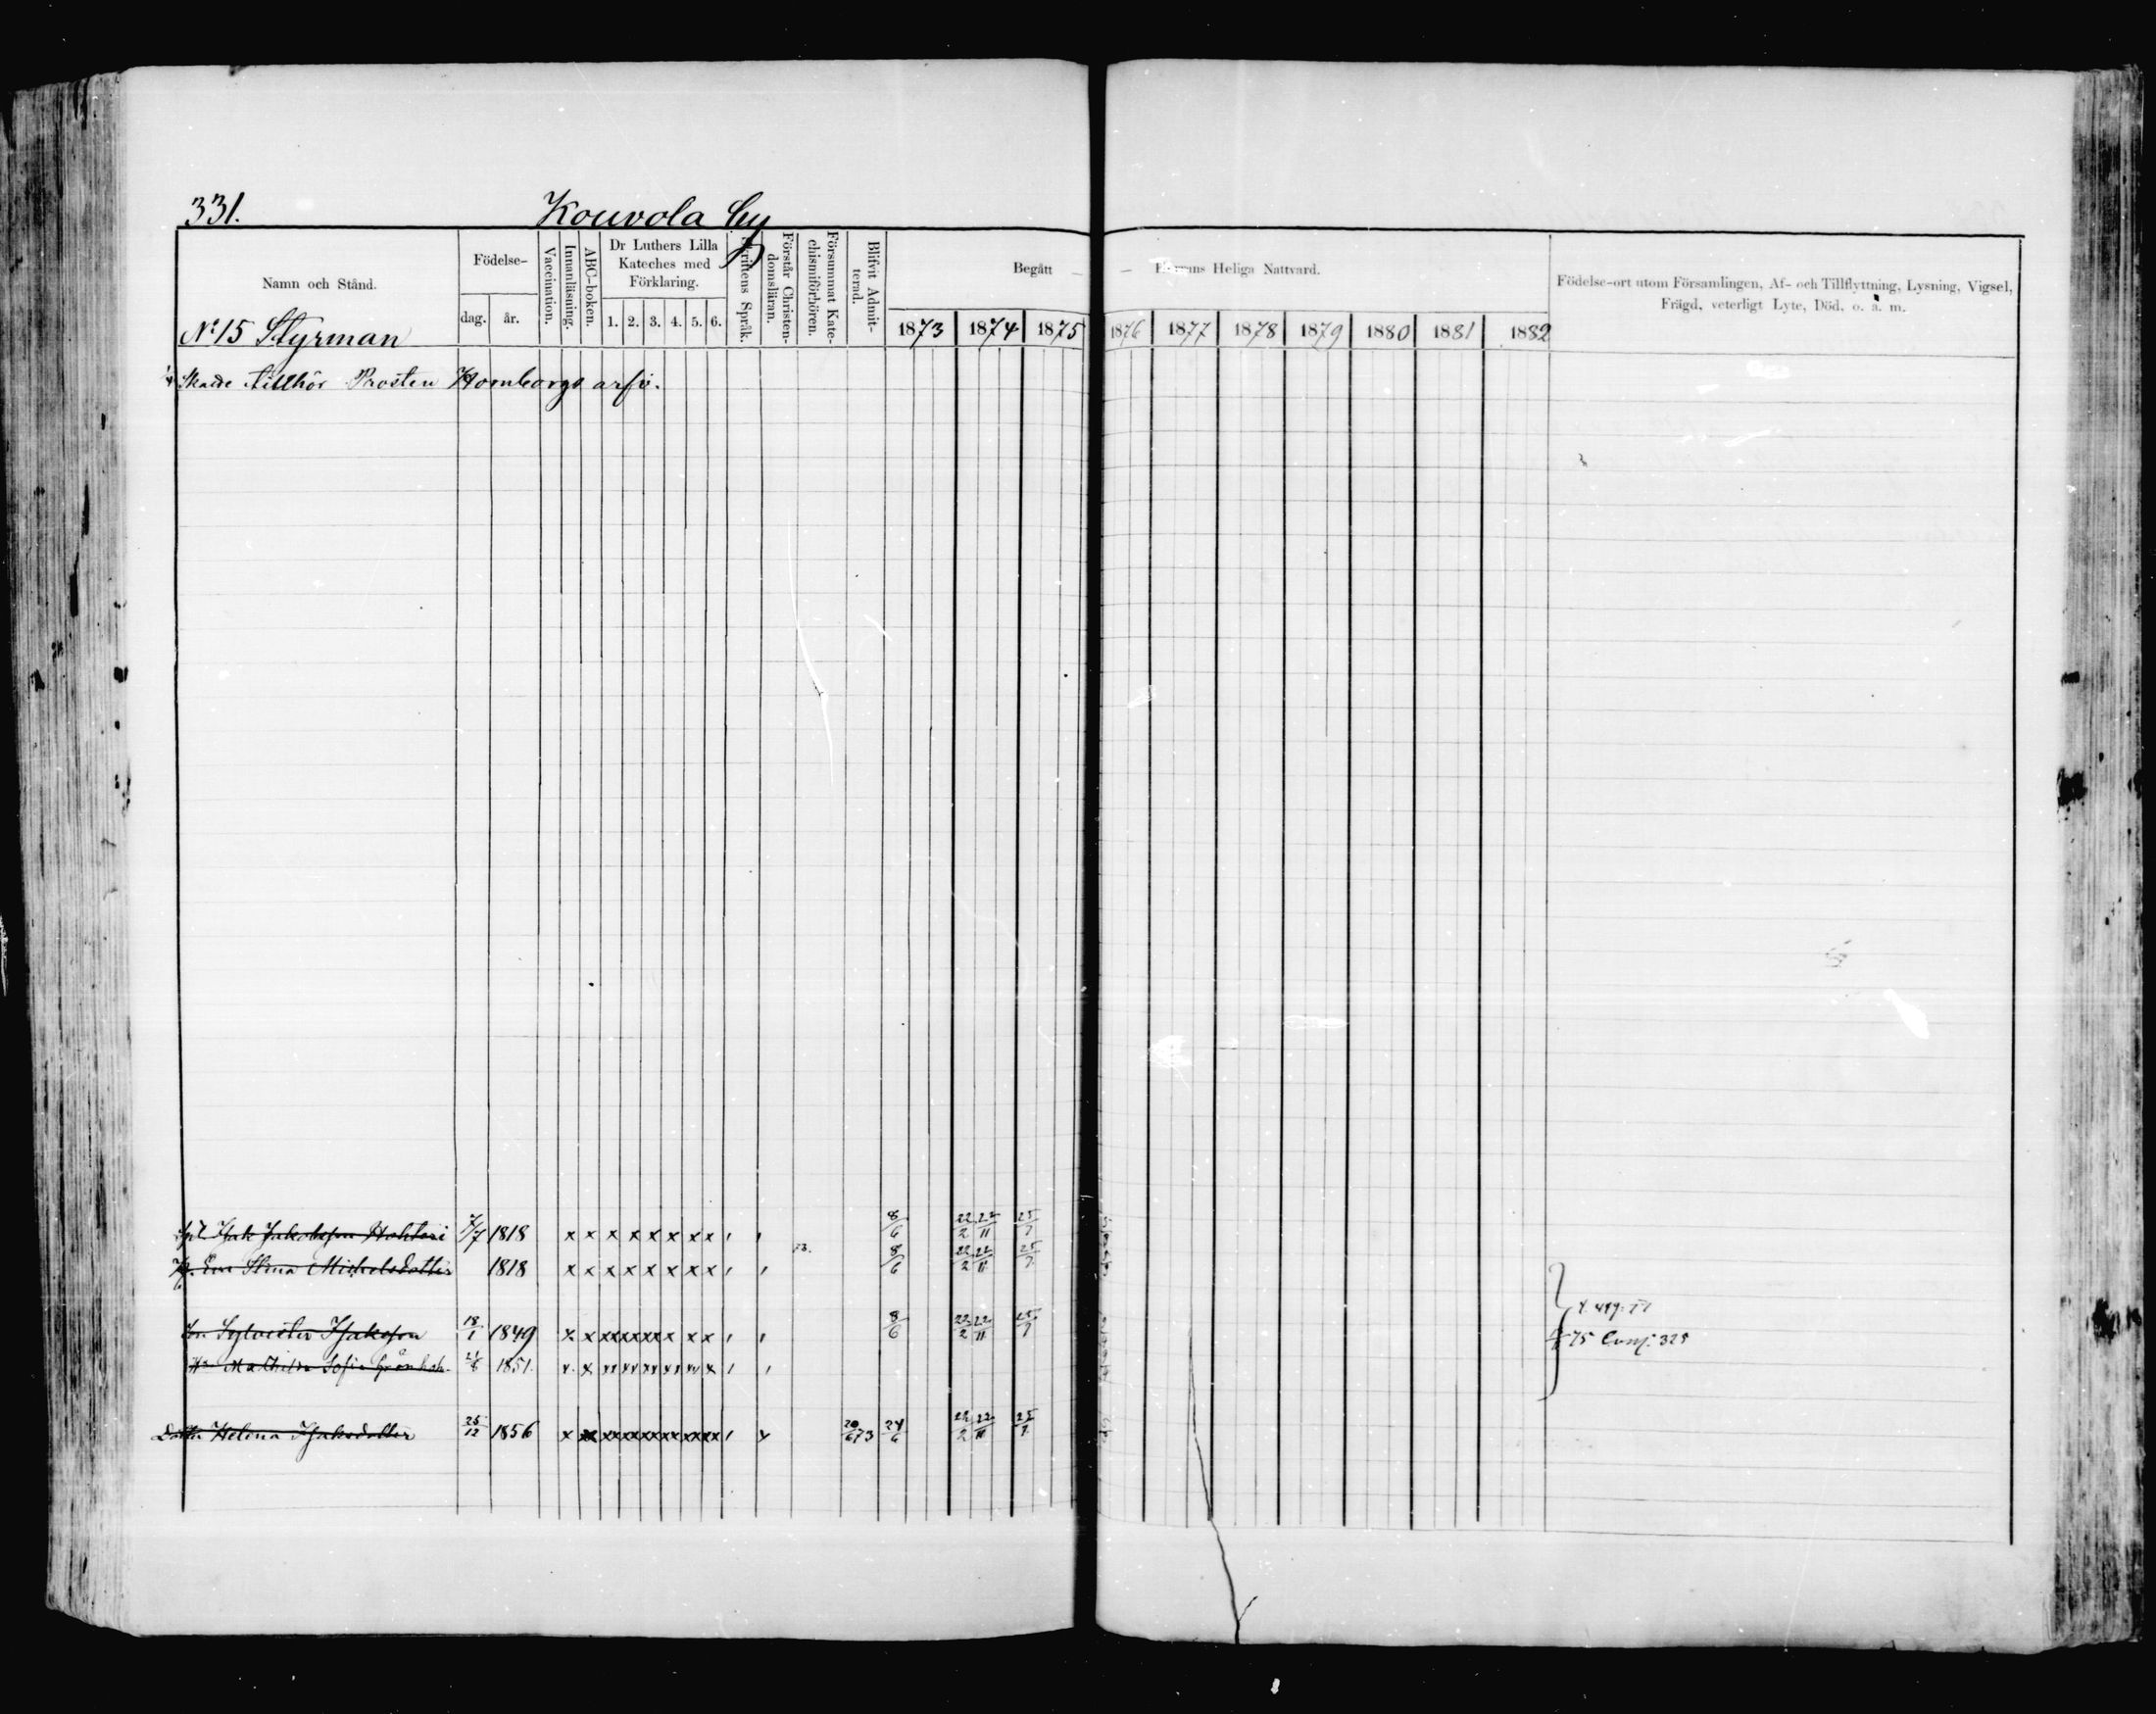 331. Kouvola by
Namn och Stånd.
Födelse-
dag. år.
Vaccination.
Innanläsning.
ABC-boken.
Dr Luthers Lilla
Kateches med
Förklaring.
1. 2. 3. 4. 5. 6.
Skriftens Språk.
Förstår Christen-
domsläran.
Försummat Kate-
chismiförhören.
Blifvit Admit-
terad.
Begått — — Herrans Heliga Nattvard.
1873 1874 1875 1876 1877 1878 1879 1880 1881 1882
Födelse-ort utom Församlingen, Af- och Tillflyttning, Lysning, Vigsel,
Frägd, veterligt Lyte, Död, o. a. m.
No 15 Styrman
tillhör Prosten Homborgs arfv.
Isak Jakobsson 7/7 1818 x x x x x x x x 8/6 22/2 22/11 25/7
Stina Michelsdotter 1818 x x x x x x x x 8/6 22/2 22/11 25/7
Sylvester Isaksson 18/1 1849 x x xx xx xx x x x 8/6 22/2 22/11 25/7
Mathilda Sofia 1851. x x xx xx xx xx xx x
Dotter Helena Isaksdotter 25/12 1856 x x xx xx xx xx xx xx 20/6 73 24/6 22/2 22/11 25/7
75 325